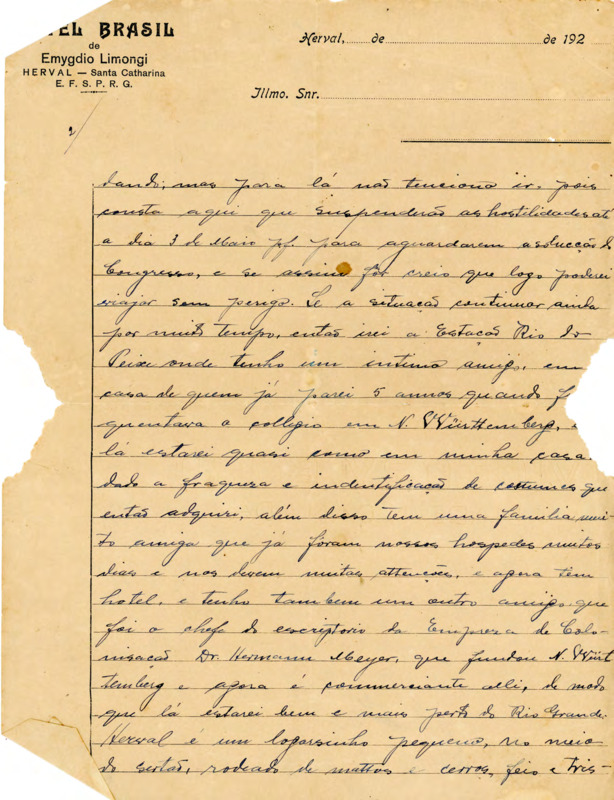 TEL BRASIL
de
Emygdio Limongi
HERVAL — Santa Catharina
E. F. S. P. R. G.
Herval, de de 192
Illmo. Snr.
2/
dando; mas para lá não tenciono ir, pois
consta aqui que suspenderão as hostilidades até
a dia 3 de Maio pf. para aguardarem a solucção do
Congresso, e se assim fôr creio que logo poderei
viajar sem perigo. Se a situação continuar ainda
por muito tempo, então irei a Estação Rio do
Peixe onde tenho um intimo amigo, em
casa de quem já parei 5 annos quando f
quentava o collegio em N. Württemberg,
lá estarei quasi como em minha casa
dado a franqueza e indentificação de costumes que
então adquiri, além disso tem uma familia mui-
to amiga que já foram nossos hospedes muitos
dias e nos deram muitas attenções, e agora têm
hotel, e tenho tambem um outro amigo que
foi o chefe do escriptorio da Empreza de Colo-
nisação Dr. Hermann Meyer, que fundou N. Würt
temberg e agora é commerciante alli, de modo
que lá estarei bem e mais perto do Rio Grande.
Herval é um logarsinho pequeno, no meio
do sertão, rodeado de mattos e cerros, feio e tris-